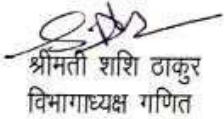 श्रीमती शशि ठाकुर
विभागाध्यक्ष गणित